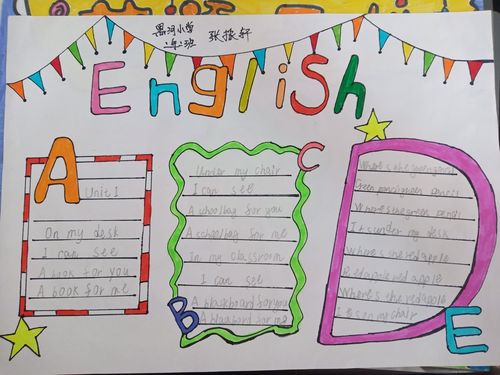 黑河小学
张按轩
English
A
Unit 1
On my desk
I can see
A book for you
A book for me
B
C
Under my chair
I can see
A schoolbag for you
A schoolbag for me
In my classroom
I can see
A blackboard for you
A blackboard for me
D
Where's the green pencil
Green pencil green pencil
Where's the green pencil
It's under my desk
Where's the red apple
Red apple red apple
Where's the red apple
It is on my chair
E